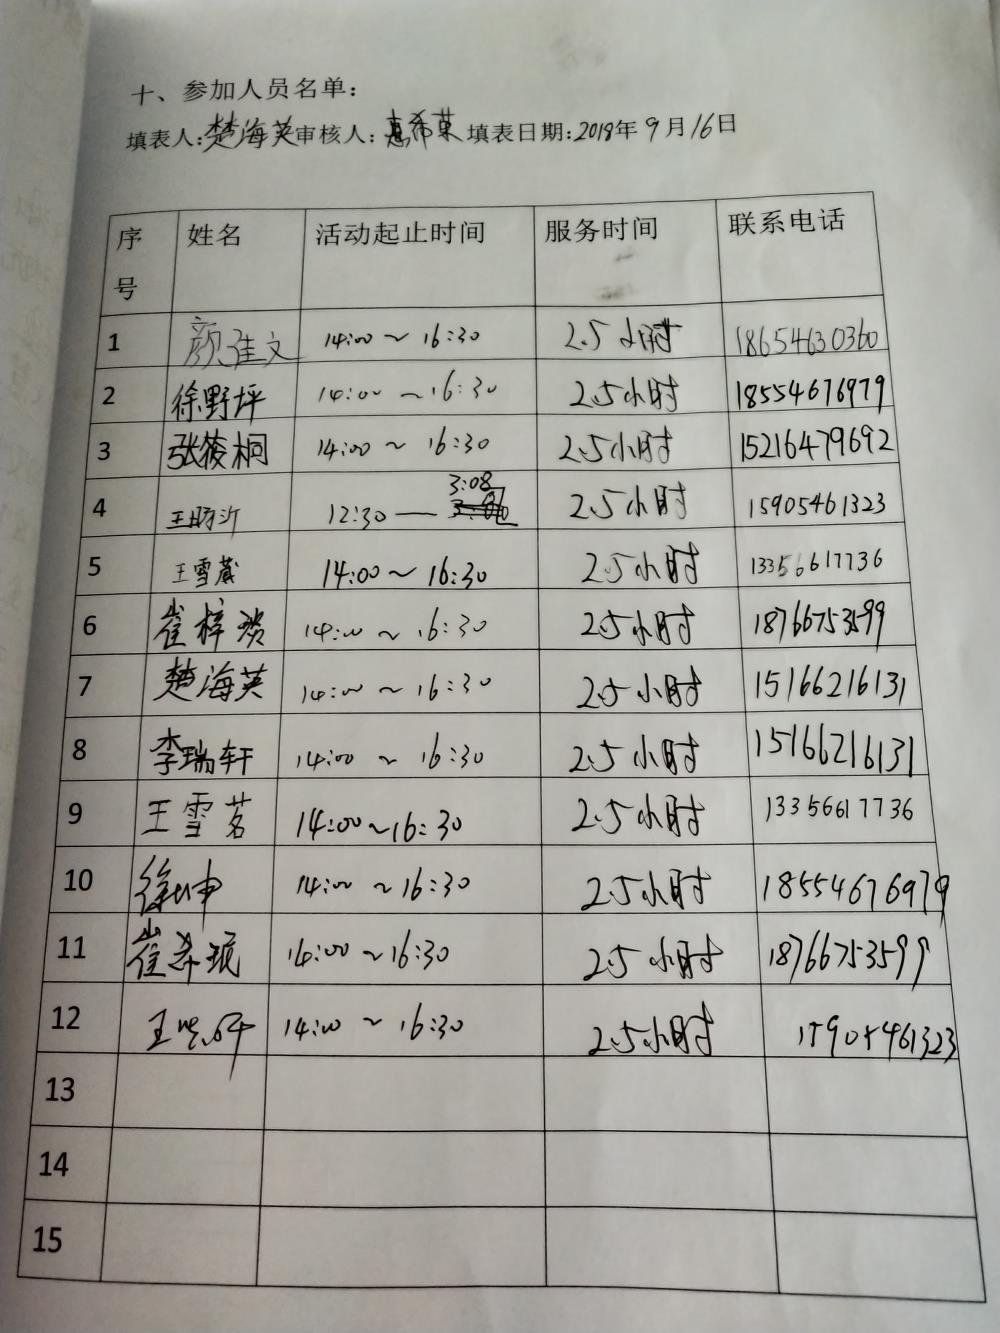 十、参加人员名单：
填表人：楚海英 审核人：惠希荣 填表日期：2018年9月16日
序号 姓名 活动起止时间 服务时间 联系电话
1 颜佳文 14:00～16:30 2.5小时 18654630360
2 徐野坪 14:00～16:30 2.5小时 18554676979
3 张筱桐 14:00～16:30 2.5小时 15216479692
4 王旸沂 12:30—3:08 2.5小时 15905461323
5 王雪 14:00～16:30 2.5小时 13356617736
6 崔梓 14:00～16:30 2.5小时 18766753599
7 楚海英 14:00～16:30 2.5小时 15166216131
8 李瑞轩 14:00～16:30 2.5小时 15166216131
9 王雪茗 14:00～16:30 2.5小时 13356617736
10 徐坤 14:00～16:30 2.5小时 18554676979
11 崔希珉 14:00～16:30 2.5小时 18766753599
12 王 14:00～16:30 2.5小时 15905461323
13
14
15